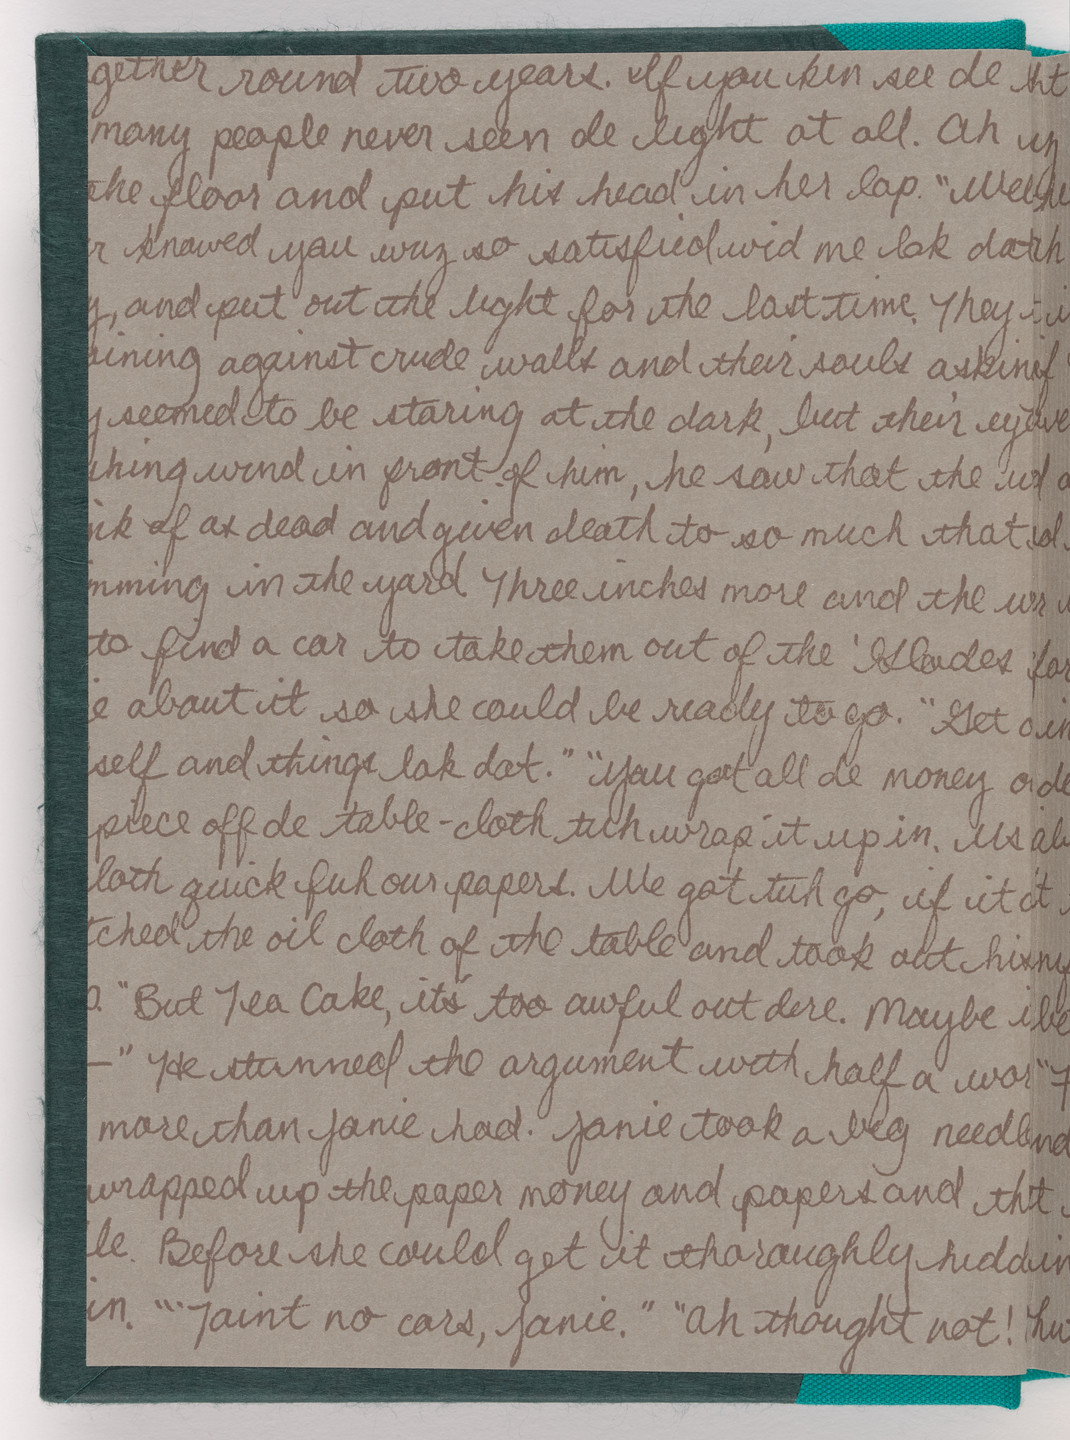 gether round two years. If you kin see de
many people never seen de light at all. Ah
the floor and put his head in her lap. "Well
knowed you wuz so satisfied wid me lak dat
, and put out the light for the last time. They
aining against crude walls and their souls askin
y seemed to be staring at the dark, but their ey
shing wind in front of him, he saw that the
nk of as dead and given death to so much that
mming in the yard Three inches more and the
to find a car to take them out of the 'Glades
e about it so she could be ready to go. "Get
self and things lak dat." "You got all de money
piece off de table-cloth tuh wrap it up in. Us
loth quick fuh our papers. We got tuh go, if it
tched the oil cloth of the table and took out his
"But Tea Cake, it's too awful out dere. Maybe
—" He stunned the argument with half a wor
more than Janie had. Janie took a big needl
wrapped up the paper money and papers and
le. Before she could get it thoroughly hidd
in. "'Taint no cars, Janie." "Ah thought not!